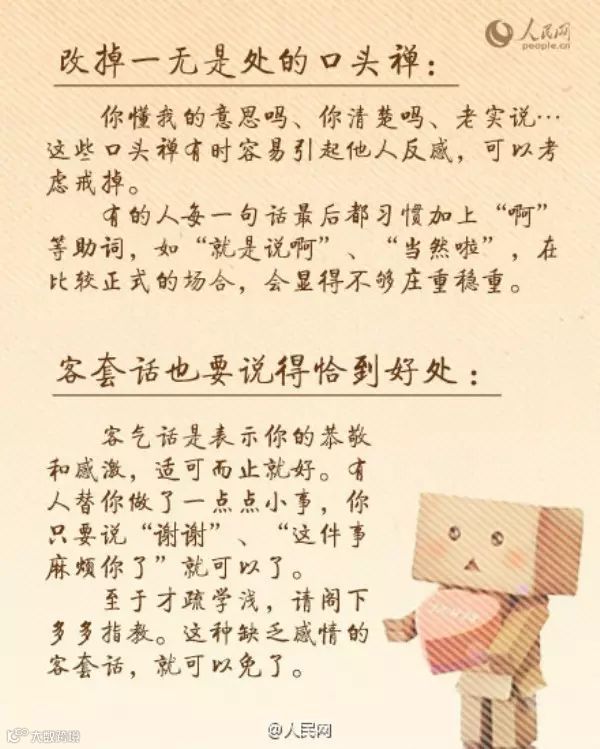 人民网
people.cn
改掉一无是处的口头禅：
你懂我的意思吗、你清楚吗、老实说…
这些口头禅有时容易引起他人反感，可以考
虑戒掉。
有的人每一句话最后都习惯加上“啊”
等助词，如“就是说啊”、“当然啦”，在
比较正式的场合，会显得不够庄重稳重。
客套话也要说得恰到好处：
客气话是表示你的恭敬
和感激，适可而止就好。有
人替你做了一点点小事，你
只要说“谢谢”、“这件事
麻烦你了”就可以了。
至于才疏学浅，请阁下
多多指教。这种缺乏感情的
客套话，就可以免了。
@人民网